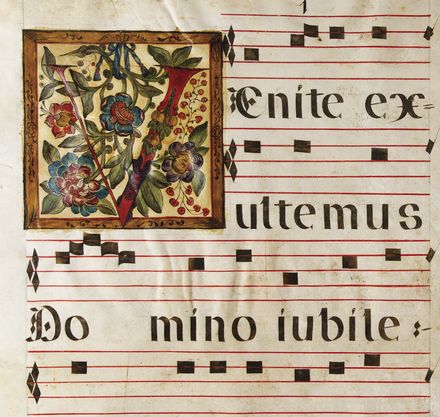 VEnite ex=
ultemus
Do mino iubile :-